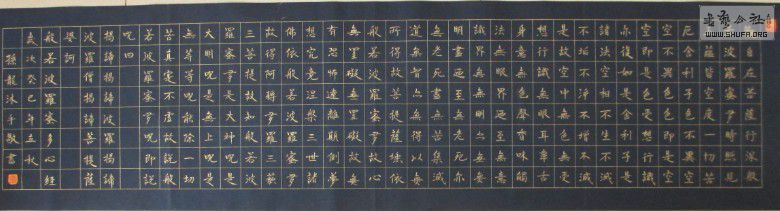 自在菩薩行深般
若波羅蜜多時照見
五蘊皆空度一切苦
厄舍利子色不異空
空不異色色即是空
空即是色受想行識
亦復如是舍利子是
諸法空相不生不滅
不垢不淨不增不減
是故空中無色無受
想行識無眼耳鼻舌
身意無色聲香味觸
法無眼界乃至無意
識界無無明亦無無
明盡乃至無老死亦
無老死盡無苦集滅
道無智亦無得以無
所得故菩提薩埵依
般若波羅蜜多故心
無罣礙無罣礙故無
有恐怖遠離顛倒夢
想究竟涅槃三世諸
佛依般若波羅蜜多
故得阿耨多羅三藐
三菩提故知般若波
羅蜜多是大神咒是
大明咒是無上咒是
無等等咒能除一切
苦真實不虛故說般
若波羅蜜多咒即說
咒曰
揭諦揭諦波羅揭諦
波羅僧揭諦菩提薩
婆訶
般若波羅蜜多心經
歲次癸巳年立秋
孫龍沐手敬書
WWW.SHUFA.ORG